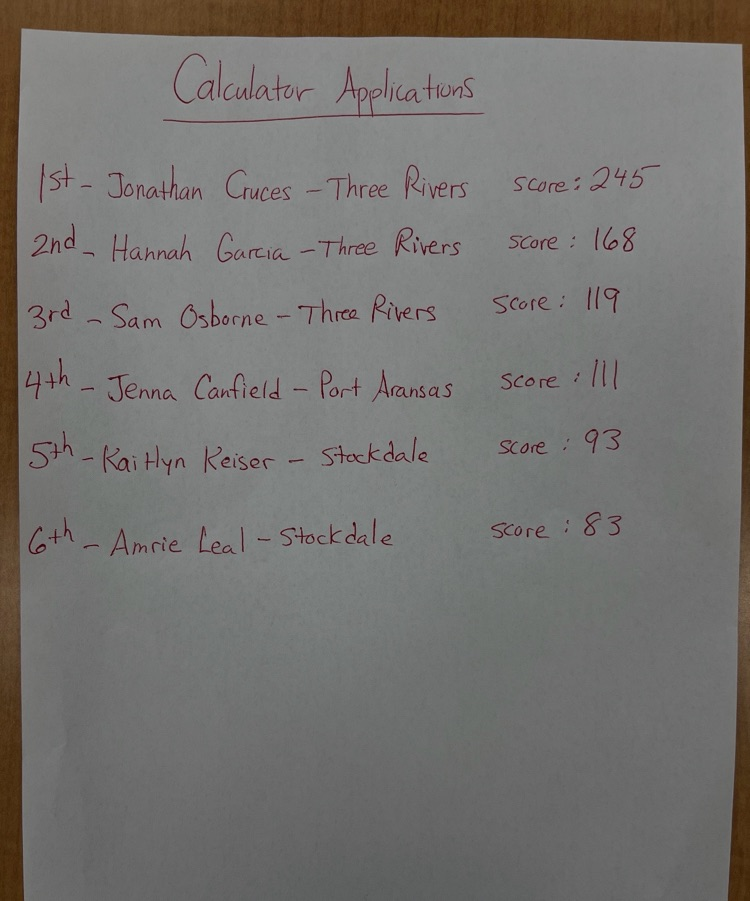 Calculator Applications
1st - Jonathan Cruces - Three Rivers score: 245
2nd - Hannah Garcia - Three Rivers score: 168
3rd - Sam Osborne - Three Rivers score: 119
4th - Jenna Canfield - Port Aransas score: 111
5th - Kaitlyn Keiser - Stockdale score: 93
6th - Amrie Leal - Stockdale score: 83